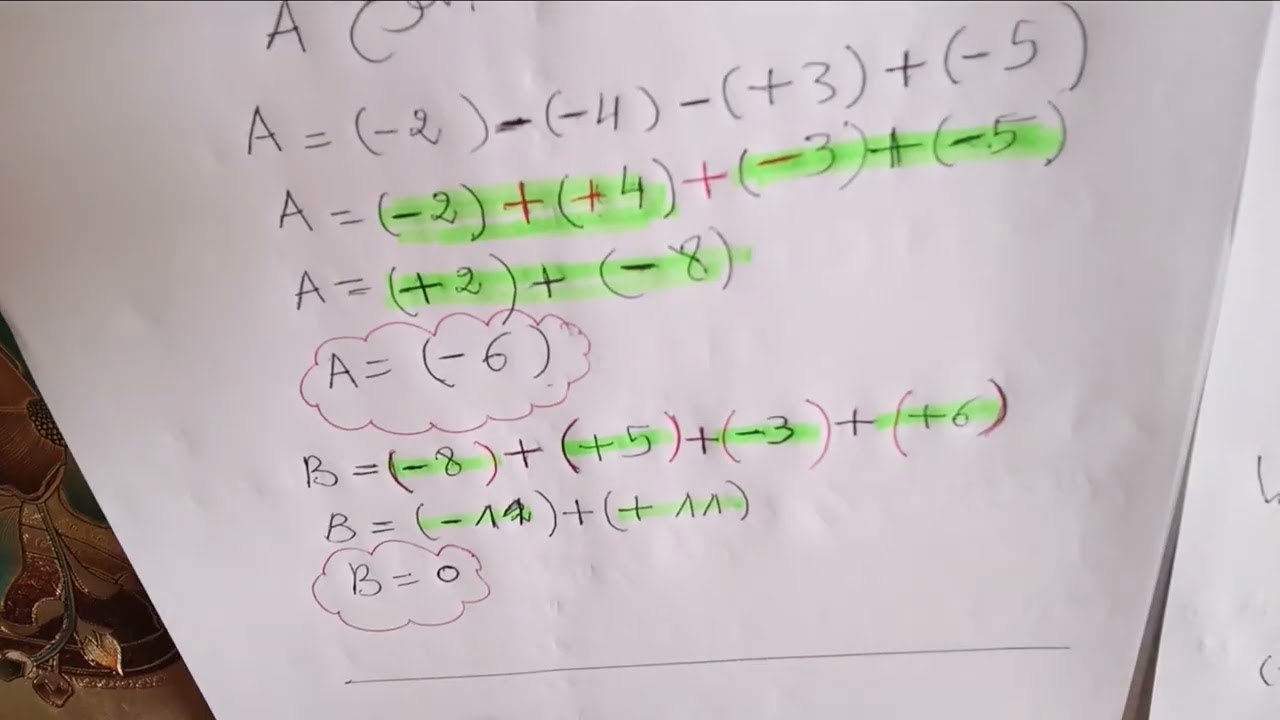 A (
A = (-2) - (-4) - (+3) + (-5)
A = (-2) + (+4) + (-3) + (-5)
A = (+2) + (-8)
A = (-6)
B = (-8) + (+5) + (-3) + (+6)
B = (-11) + (+11)
B = 0
(